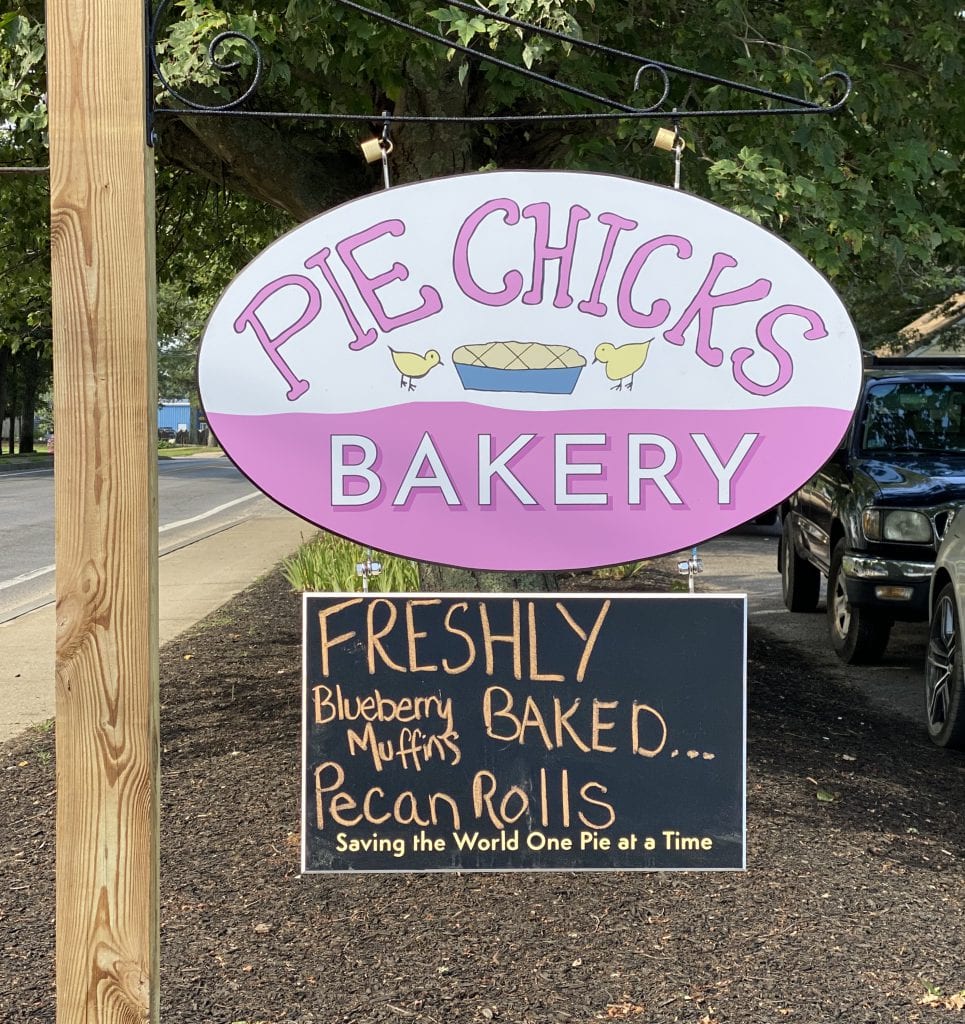 PIE CHICKS
BAKERY
FRESHLY
BAKED...
Blueberry
Muffins
Pecan Rolls
Saving the World One Pie at a Time